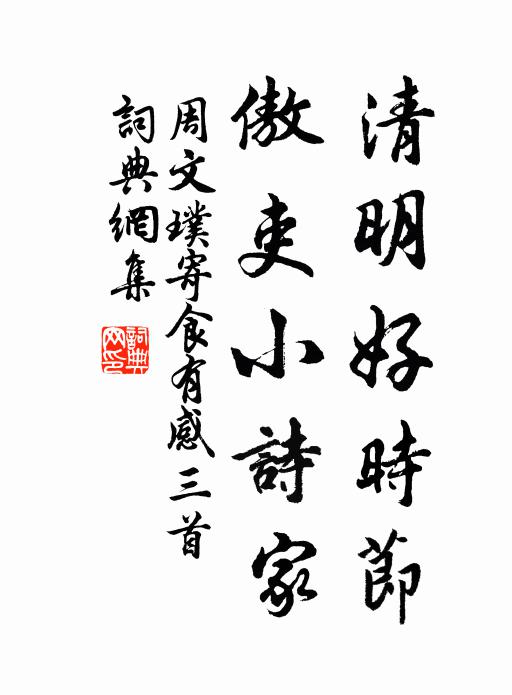 清明好時節
傲吏小詩家
周文璞寄食有感三首
詞典網集
詞典
网印